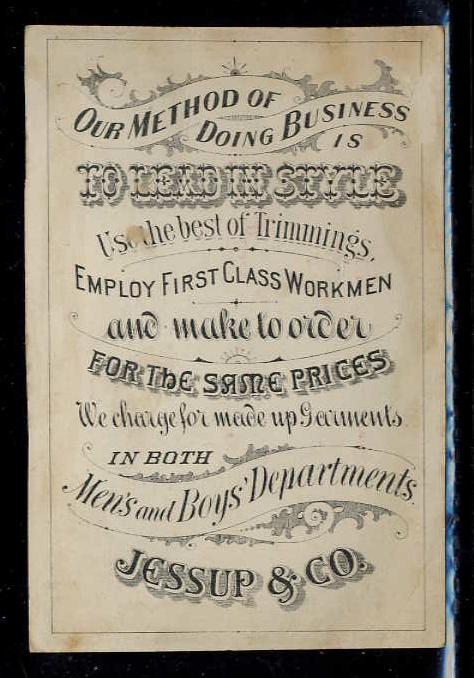 OUR METHOD OF
DOING BUSINESS
IS
TO LEAD IN STYLE
Use the best of Trimmings,
EMPLOY FIRST CLASS WORKMEN
and make to order
FOR THE SAME PRICES
We charge for made up Garments
IN BOTH
Men's and Boys' Departments.
JESSUP & CO.